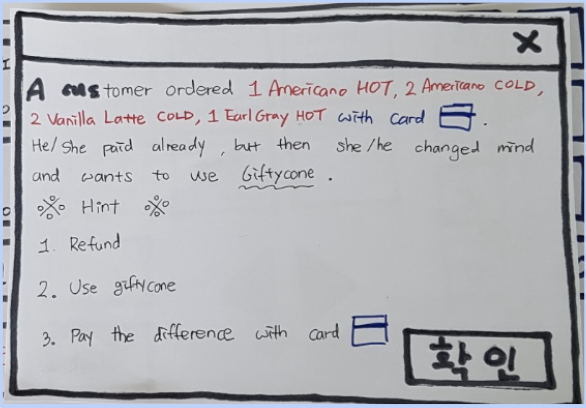 X
A customer ordered 1 Americano HOT, 2 Americano COLD,
2 Vanilla Latte COLD, 1 Earl Gray HOT with card.
He/She paid already, but then she/he changed mind
and wants to use Giftycone.
※ Hint ※
1. Refund
2. Use giftycone
3. Pay the difference with card
확인